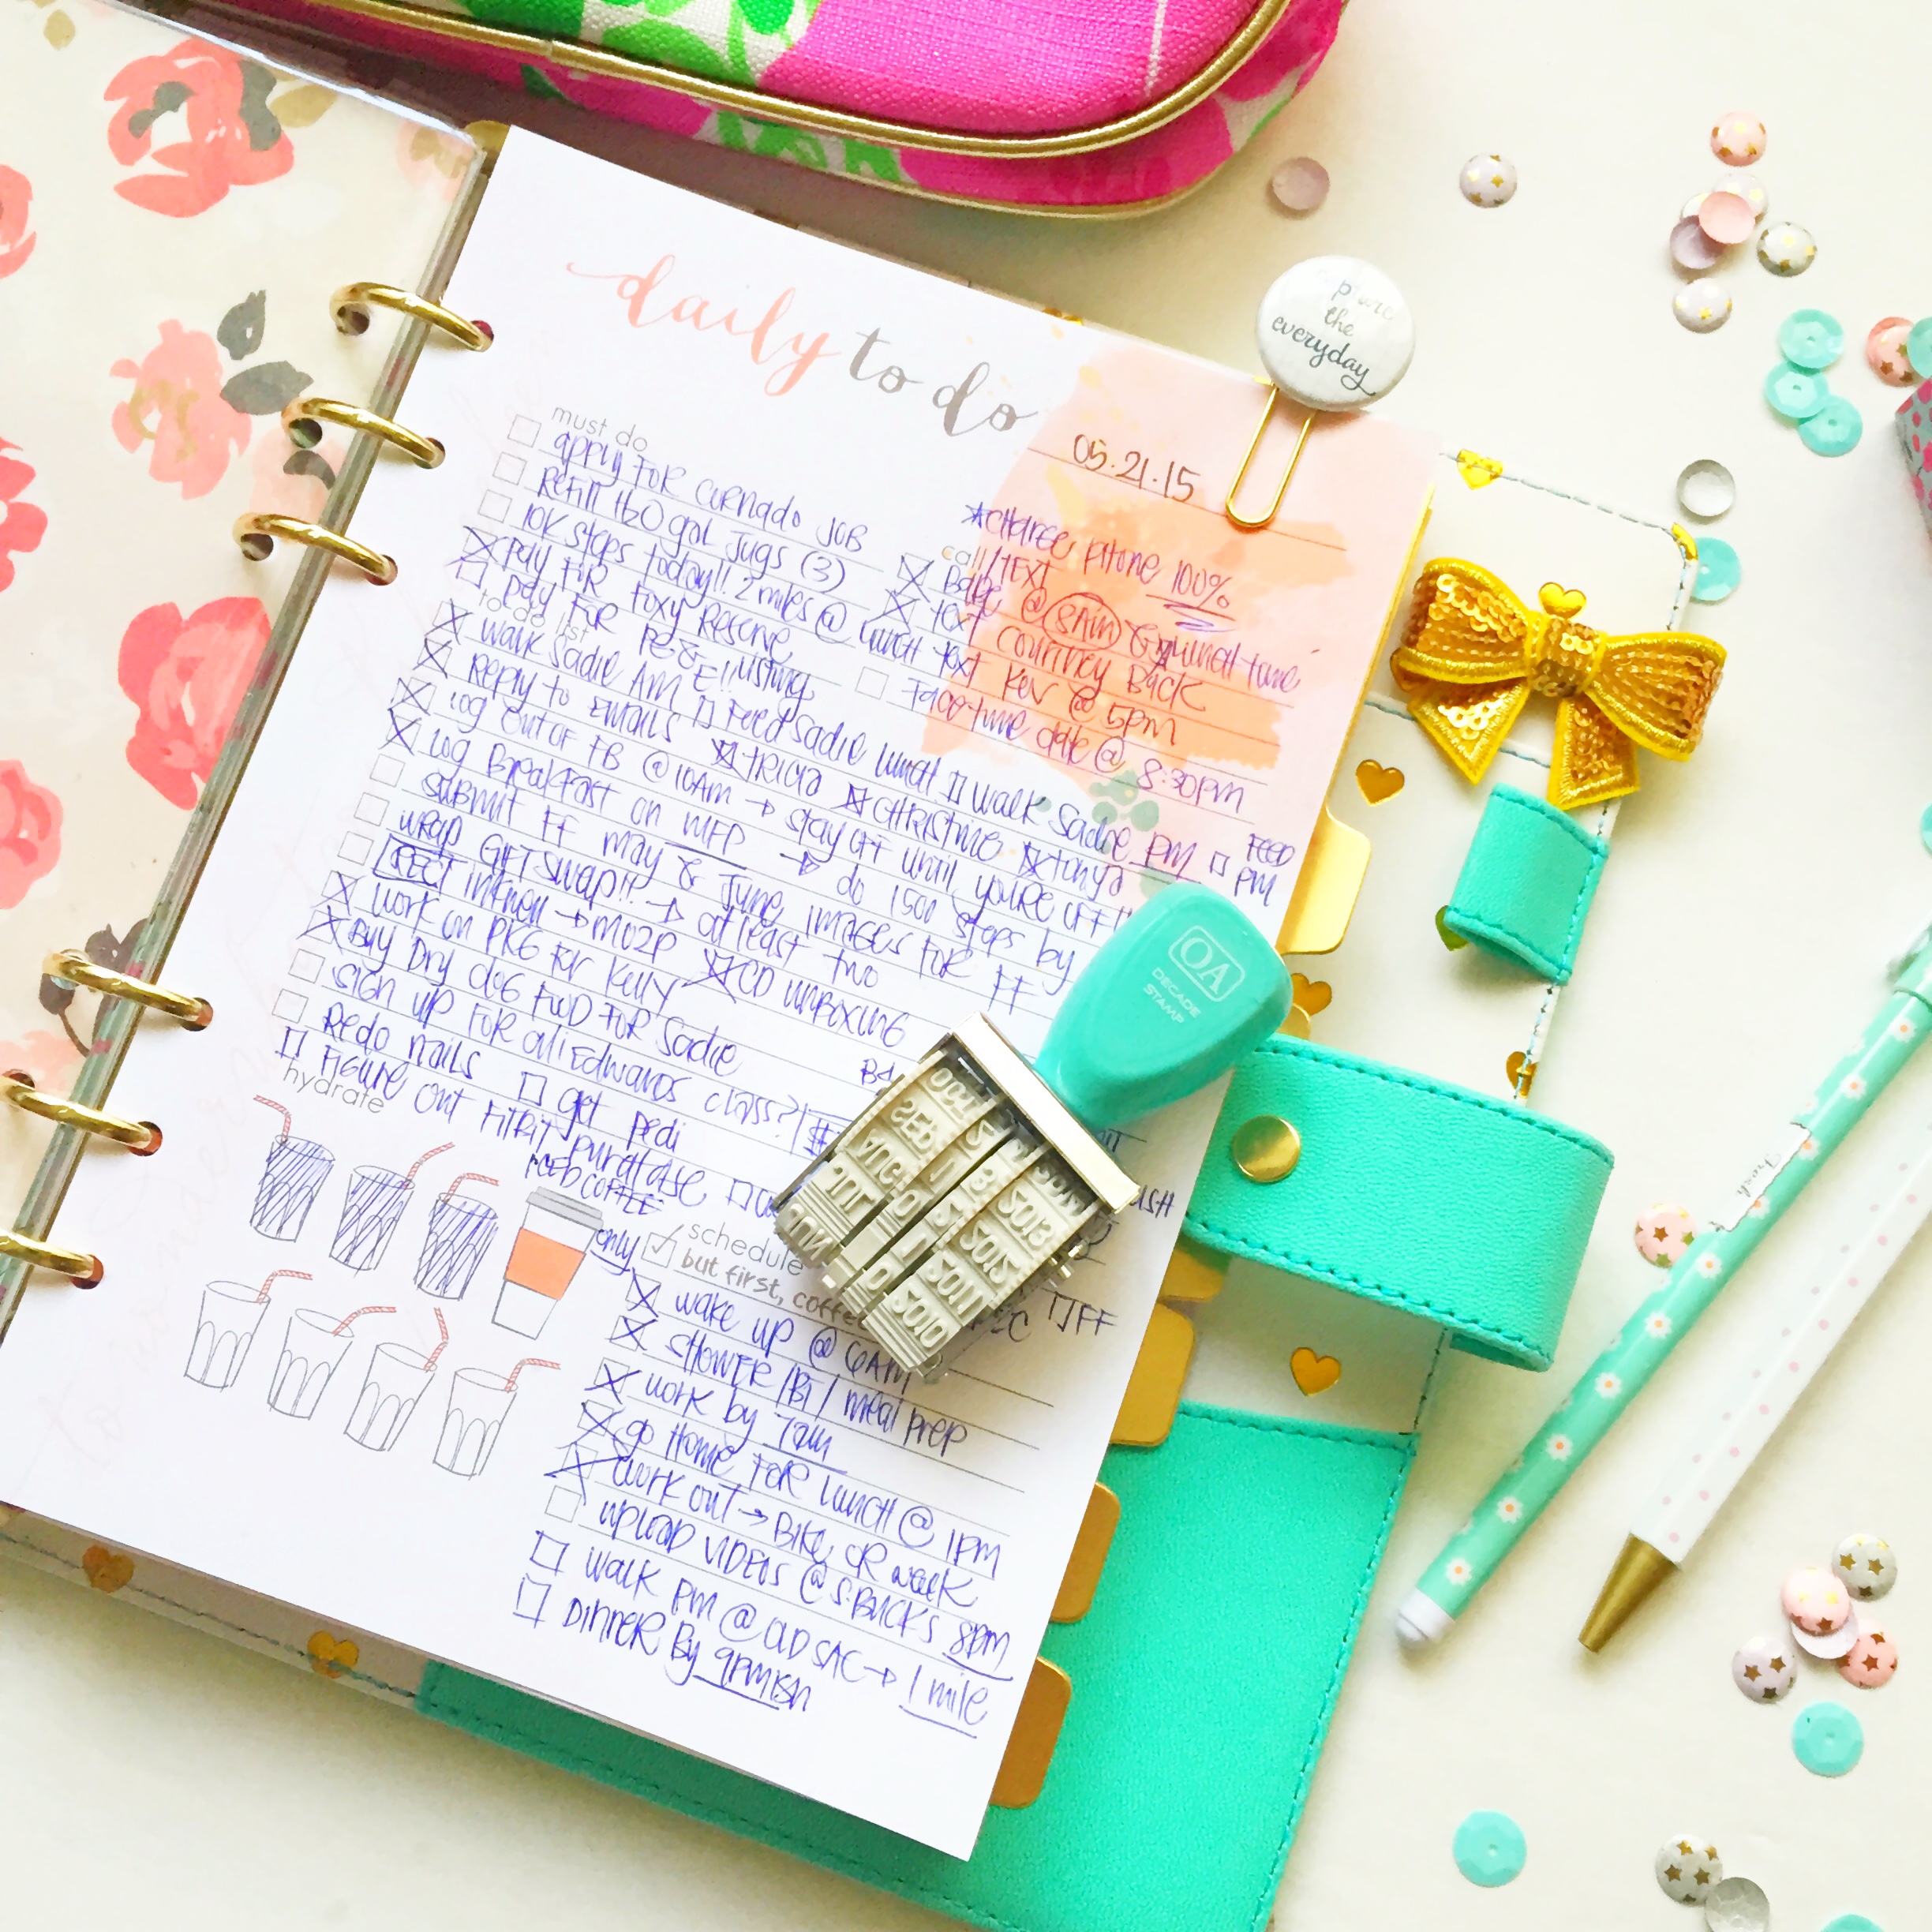 daily to do
the
everyday
05.21.15
must do
apply for Coronado JOB
Refill H2O gal Jugs (3)
10K steps today!! 2 miles @ lunch
pay for Foxy Reserve
pay for PG&E!! listing
*CHARGE PHONE 100%
call/TEXT
Babe @ 8AM & lunch time
text Courtney Back
text Kev @ 5pm
Facetime date @ 8:30pm
to do list
walk Sadie AM Feed Sadie lunch walk Sadie PM FEED PM
Reply to Emails Tricia Christine Tonya
log out of FB @ 10AM → stay off until you're off
log Breakfast on MFP → do 1500 steps by
submit FF May & June images for FF
wrap GIFTSWAP!! → at least two
→ MO2P CD unboxing
work on PKG for Kelly
Buy Dry dog food for Sadie
sign up for Ali Edwards class?
Redo nails get pedi
Figure out FITBIT purchase
hydrate
NEED COFFEE
only
schedule
but first, coffee
wake up @ 6AM
SHOWER / / meal prep
work by 7am
go Home for Lunch @ 1PM
work out → Bike or walk
upload videos @ S.Buck's 8pm
walk pm @ OLD SAC → 1 mile
DINNER By 9PMish
OA
DECADE
STAMP
OCT
SEP
AUG
JUL
JUN
2013
2012
2011
2010
TJFF
Fresh